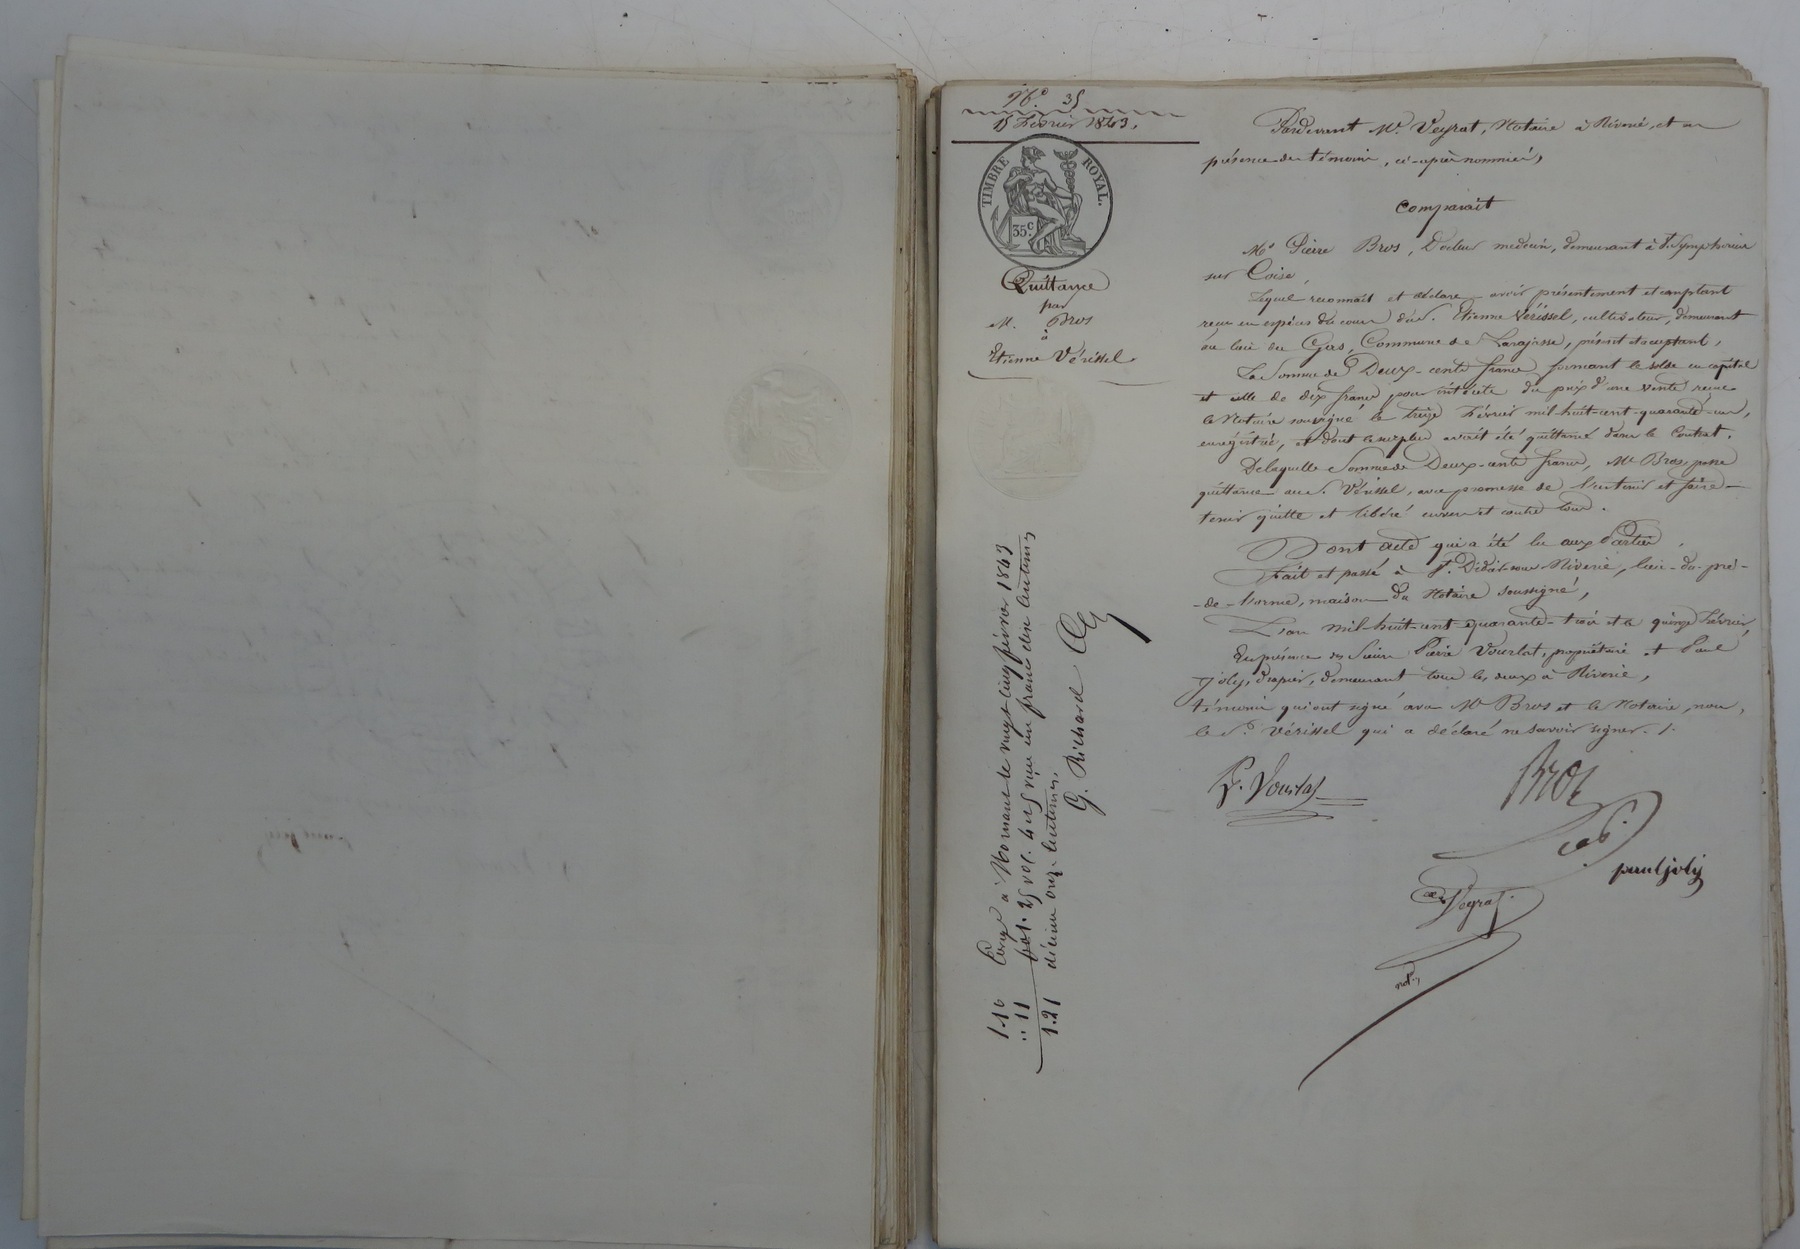 N.o 35
15 Février 1843.
TIMBRE ROYAL.
35c
Quittance
par
M. Bros
à
Etienne Vérissel.
Pardevant Me. Veyrat, Notaire à Riverie, et en
présence des témoins, ci-après nommés,
Comparait
Mr Pierre Bros, Docteur médecin, demeurant à St. Symphorien
sur Coise,
Lequel reconnait et déclare avoir présentement et comptant
reçu en espèces du cours du s. Etienne Vérissel, cultivateur, demeurant
au lieu du Gas, Commune de Larajasse, présent et acceptant,
La Somme de Deux-cents francs formant le solde en capital
et celle de dix francs pour intérêts du prix d'une vente reçue
le Notaire soussigné le treize Février mil-huit-cent-quarante-un,
enregistrée, et dont le surplus avait été quittancé dans le Contrat.
De laquelle Somme de Deux-cents francs, Mr Bros passe
quittance au s. Vérissel, avec promesse de l'en tenir et faire
tenir quitte et libéré envers et contre tous.
Dont acte qui a été lu aux Parties,
Fait et passé à St. Didier-sous-Riverie, lieu-du-pré-
-de-lorme, maison du Notaire soussigné,
L'an mil-huit-cent-quarante-trois et le quinze Février,
En présence des Sieurs Pierre Vourlat, propriétaire et Paul
Joly, drapier, demeurant tous les deux à Riverie,
témoins qui ont signé avec Mr Bros et le Notaire, non,
le s. Vérissel qui a déclaré ne savoir signer. /.
P. Vourlat
Bros
paul joly
Veyrat
not.
Enregé à Mornant le vingt cinq février 1843
fol. 25 vol. 4 reçu un franc dix centimes
décime onze centimes.
G. Richard
1.10
" 11
1.21